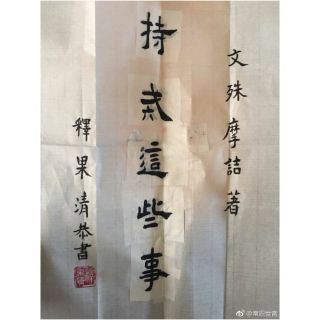 文殊摩詰著
持戒這些事
釋果清恭書